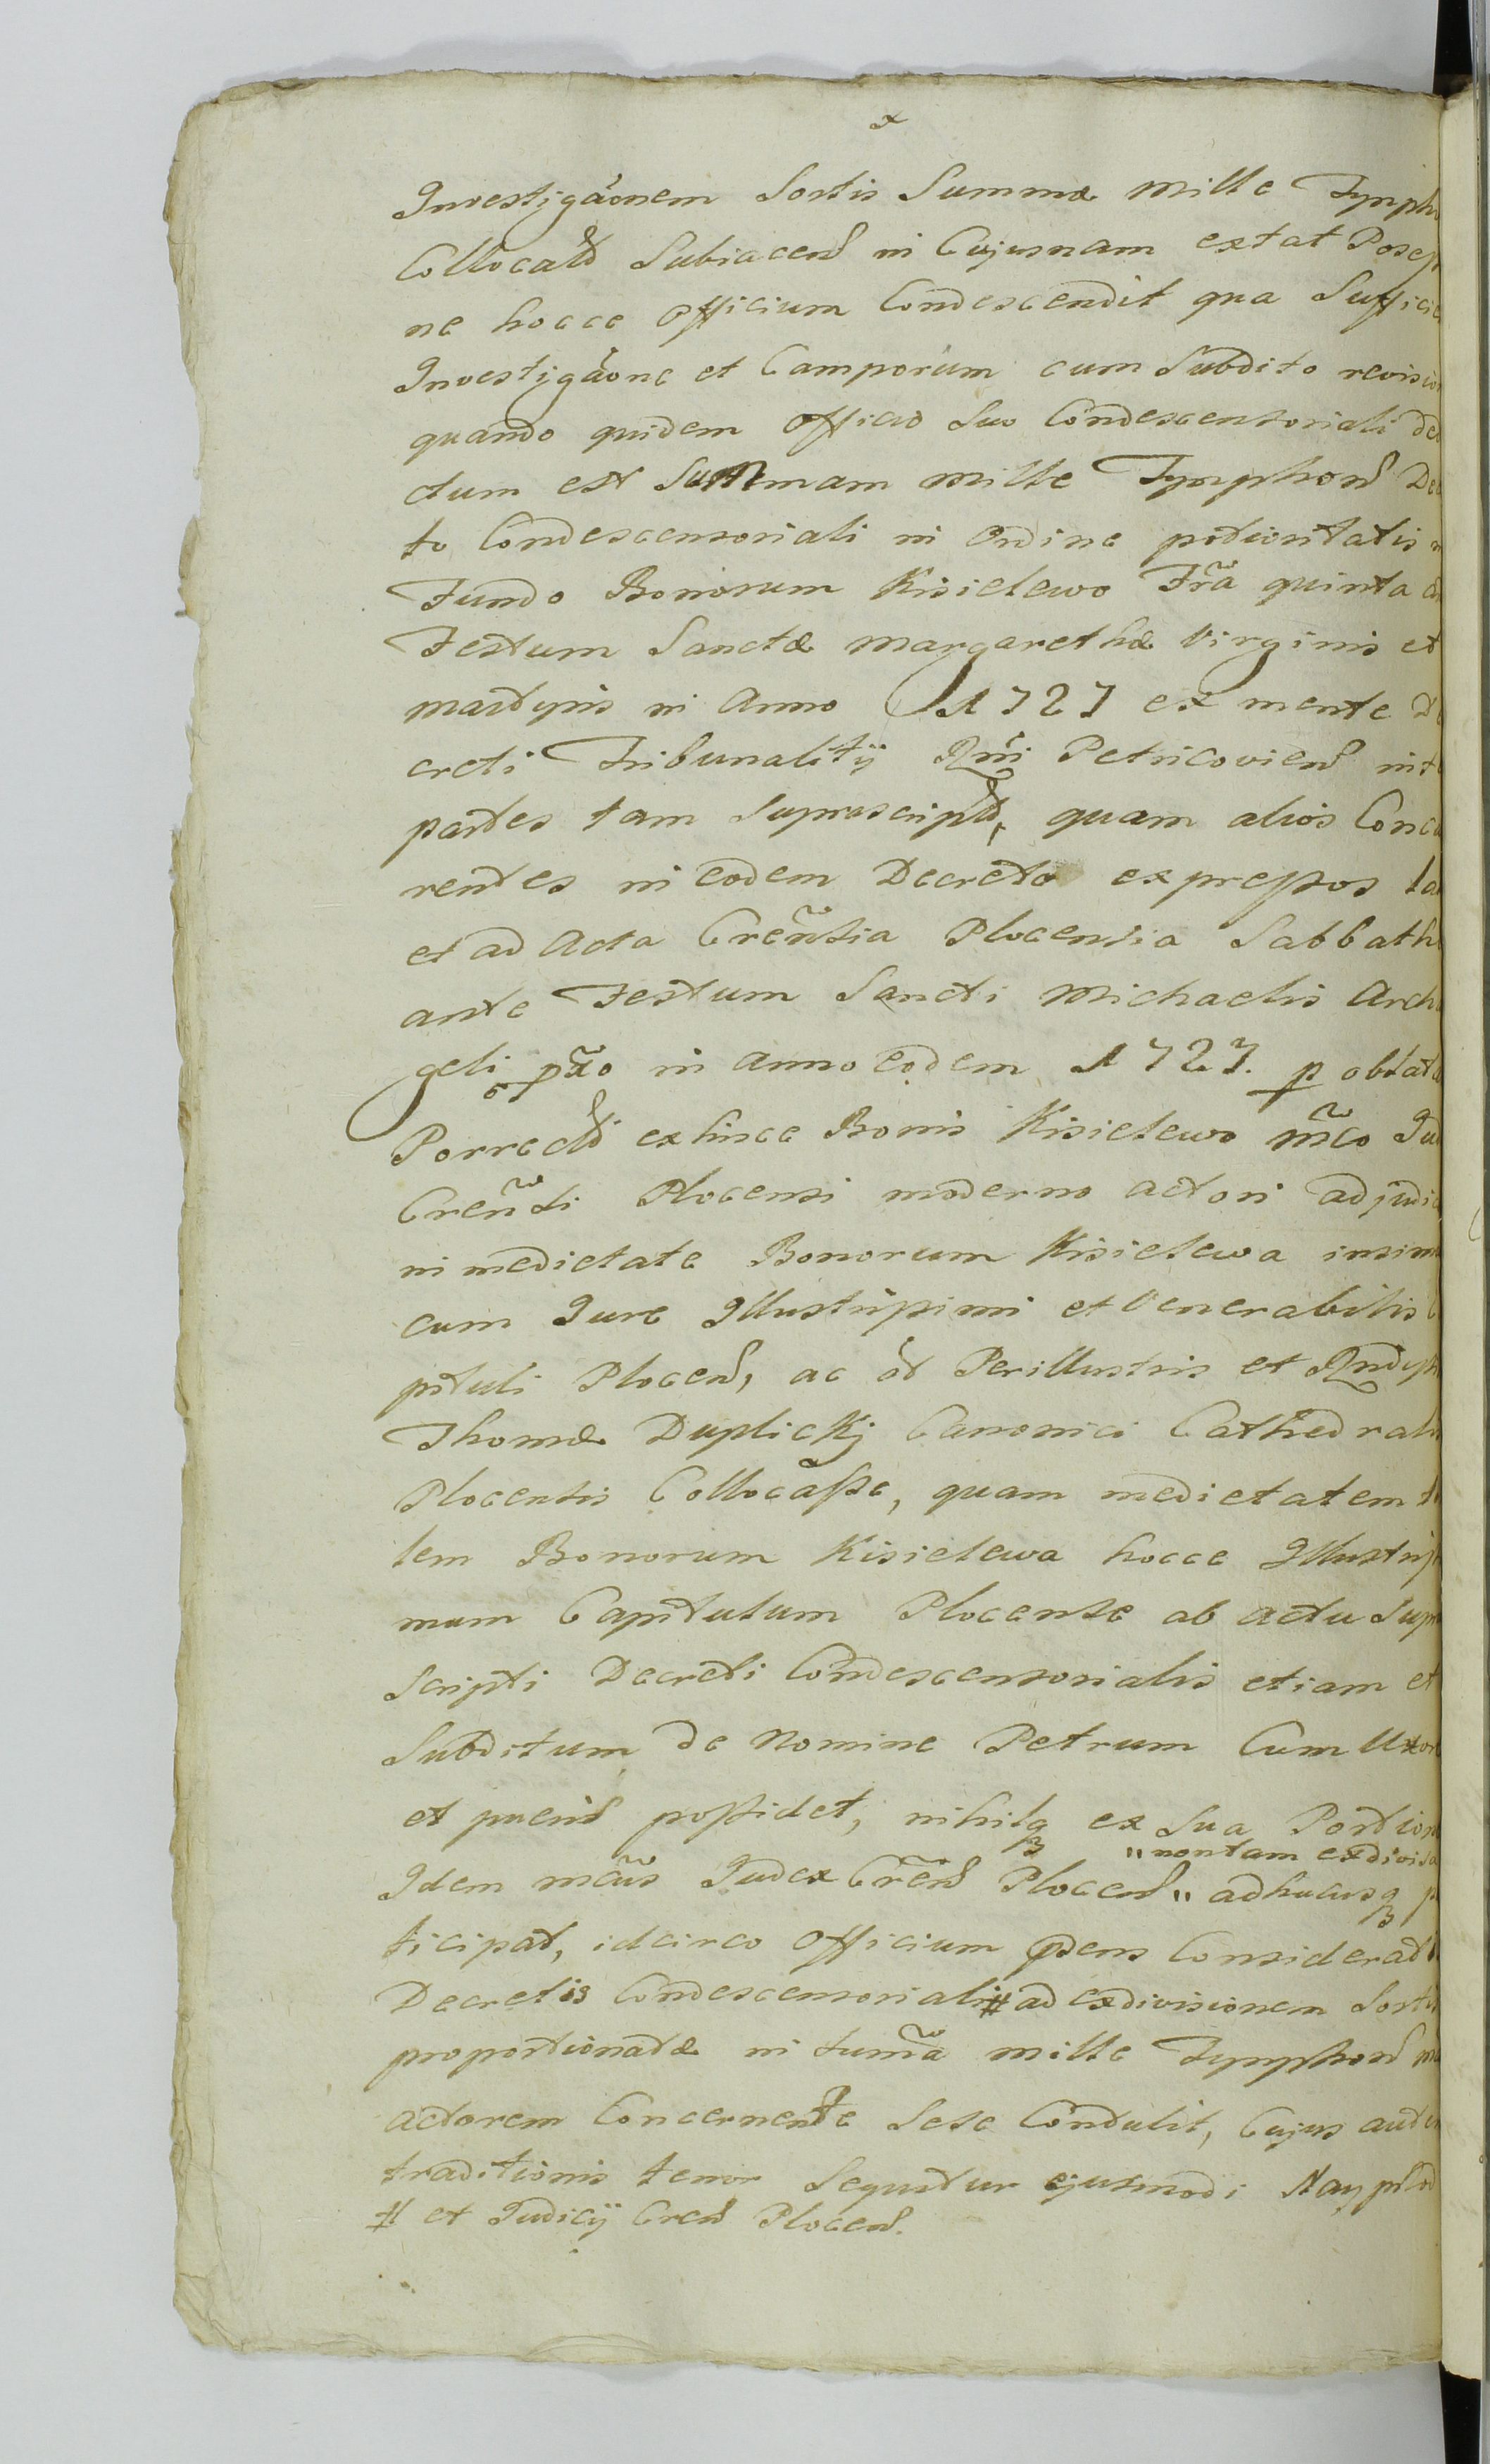 x
Investigãonem Sortis Summæ Mille Tymph
Collocatõ Subiacen̄ in Cujusnam extat Posesſ
ne hocce Officium Condescendit qua Suffici
Investigãone et Camporum cum Subdito revisio
quando quidem Officio Suo Condescensoriali de
ctum est Summam Mille Tymphon̄ De
to Condescensoriali in Ordine potioritatis
Fundo Bonorum Kisielewo Fr̃a quinta
Festum Sanctæ Margarethæ Virginis et
Martyris in Anno 1727 ex mente D
creti Tribunalitÿ Rñi Petricovien̄ int
partes tam Suprascript̄, quam alios Conc
rentes in eodem Decreto expressos la
et ad Acta Creñsia Plocensia Sabbath
ante Festum Sancti Michaelis Arch
geli px̃o in Anno eodem 1727. p oblat
Porrect̄ ex hisce Bonis Kisielewo Mc̃o Iu
Creñsi Plocensi moderno Actori adjudic
in medietate Bonorum Kisielewa insim
cum Iure Illustrissimi et Venerabilis
pituli Plocen̄, ac ãd Perillustris et Rñdiss
Thomæ Duplickj Canonici Cathedrali
Plocensis Collocãsse, quam medietatem
lem Bonorum Kisielewa hocce Illustriss
mum Capitulum Plocense ab actu Sup
Scripti Decreti Condescensorialis etiam et
Subditum de Nomine Petrum Cum Uxor
et pueris possidet, nihilq ex Sua Portion
"nontam exdivisa
Idem Mcũs Iudex Cren̄ Plocen̄ " adhucusq p
ticipat, idcirco Officium p̃sens Considerat
Decretis Condescensorialis # ad exdivisionem Sortis
proportionatæ in sum̃a Mille Tymphon̄
Actorem Concernente Sese Contulit, Cujus aute
traditionis tenor Sequitur ejusmodi Nayp̃od
# et Iudicÿ Cren̄ Plocen̄.